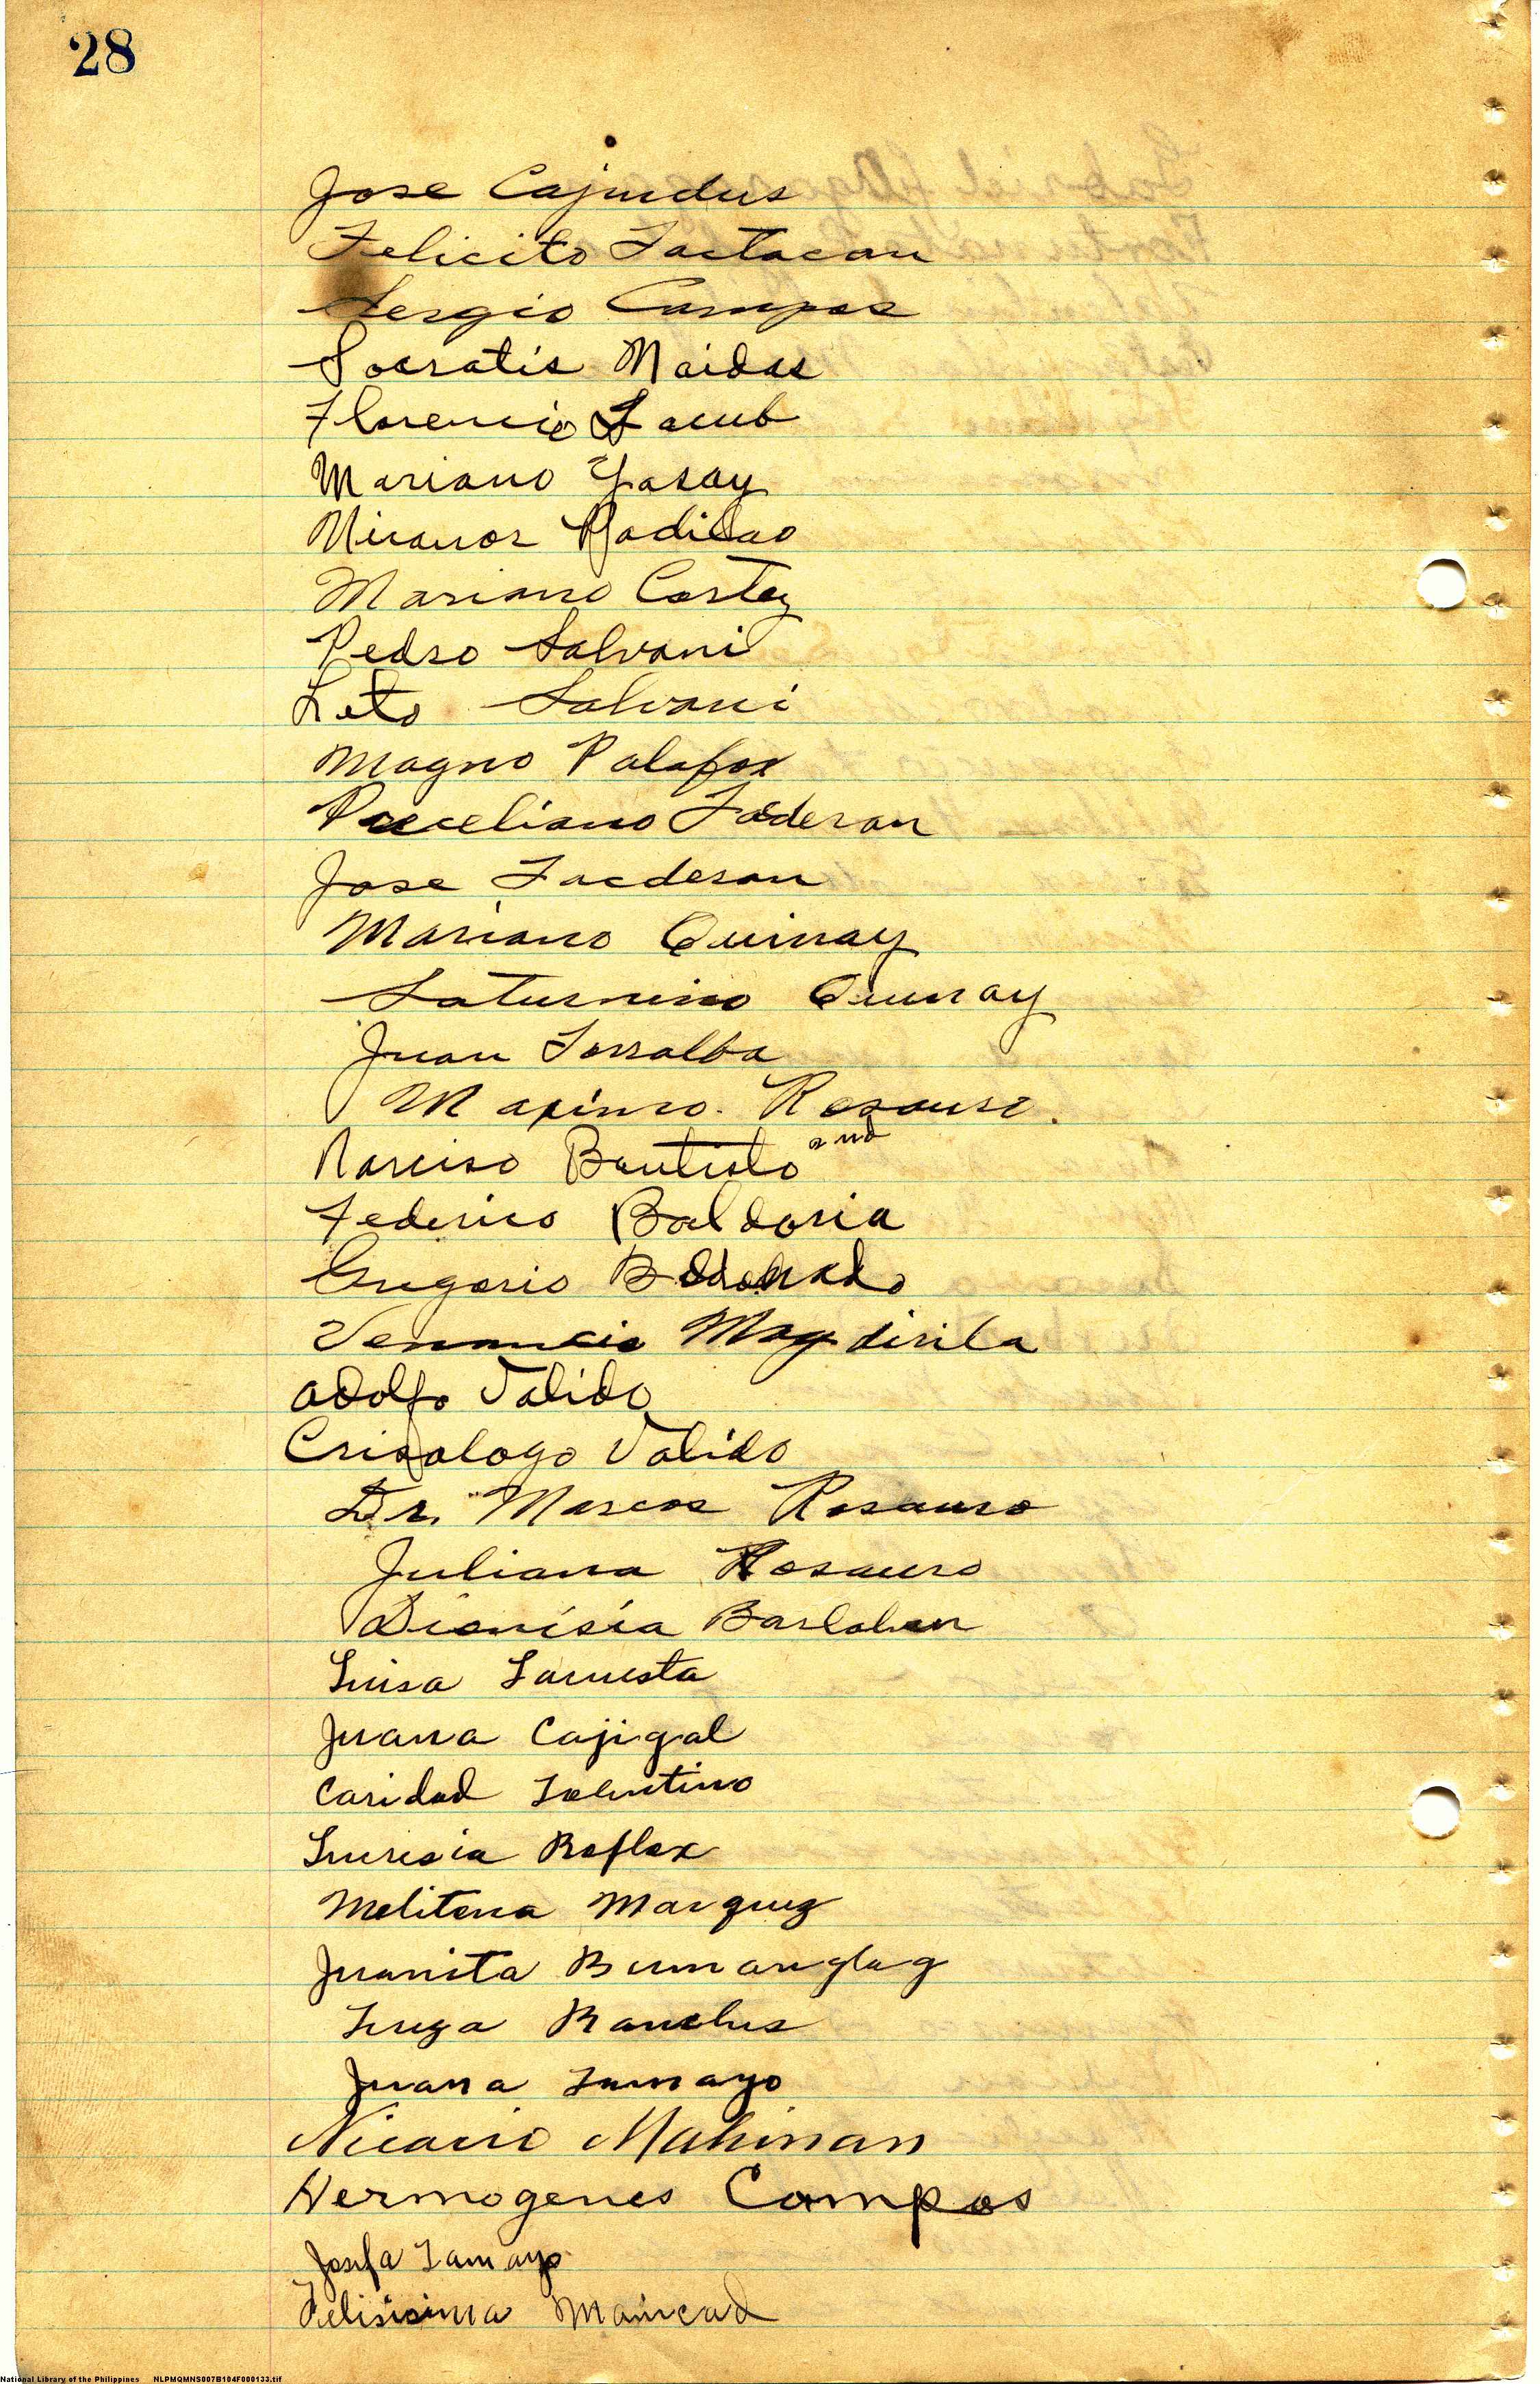 28
Jose Cajudus
Felicito Lactacan
Sergio Campos
Socratis Naidas
Florencio Lacub
Mariano Yasay
Nicanor Padilao
Mariano Cortez
Pedro Salvani
Leto Salvani
Magno Palafox
Luderan
Jose Lacderan
Mariano Quinay
Saturnino Quinay
Juan Torralba
Maximo. Rosauro.
Narciso Bautista 2nd
Federico Baldoria
Gregorio
Venancio Magdirila
Adolfo Valido
Crisologo Valido
Dr. Marcos Rosauro
Juliana Rosauro
Dionisia Barlahan
Luisa Lacuesta
Juana Cajigal
Caridad Tolentino
Lucresia Roflox
Melitona Marquez
Juanita Bumanglag
Luiza
Juana Tumayo
Nicario Mahinan
Hermogenes Campos
Josefa Tamayo
Felisisima Maincad
National Library of the Philippines NLPMQMNS007B104F000133.tif